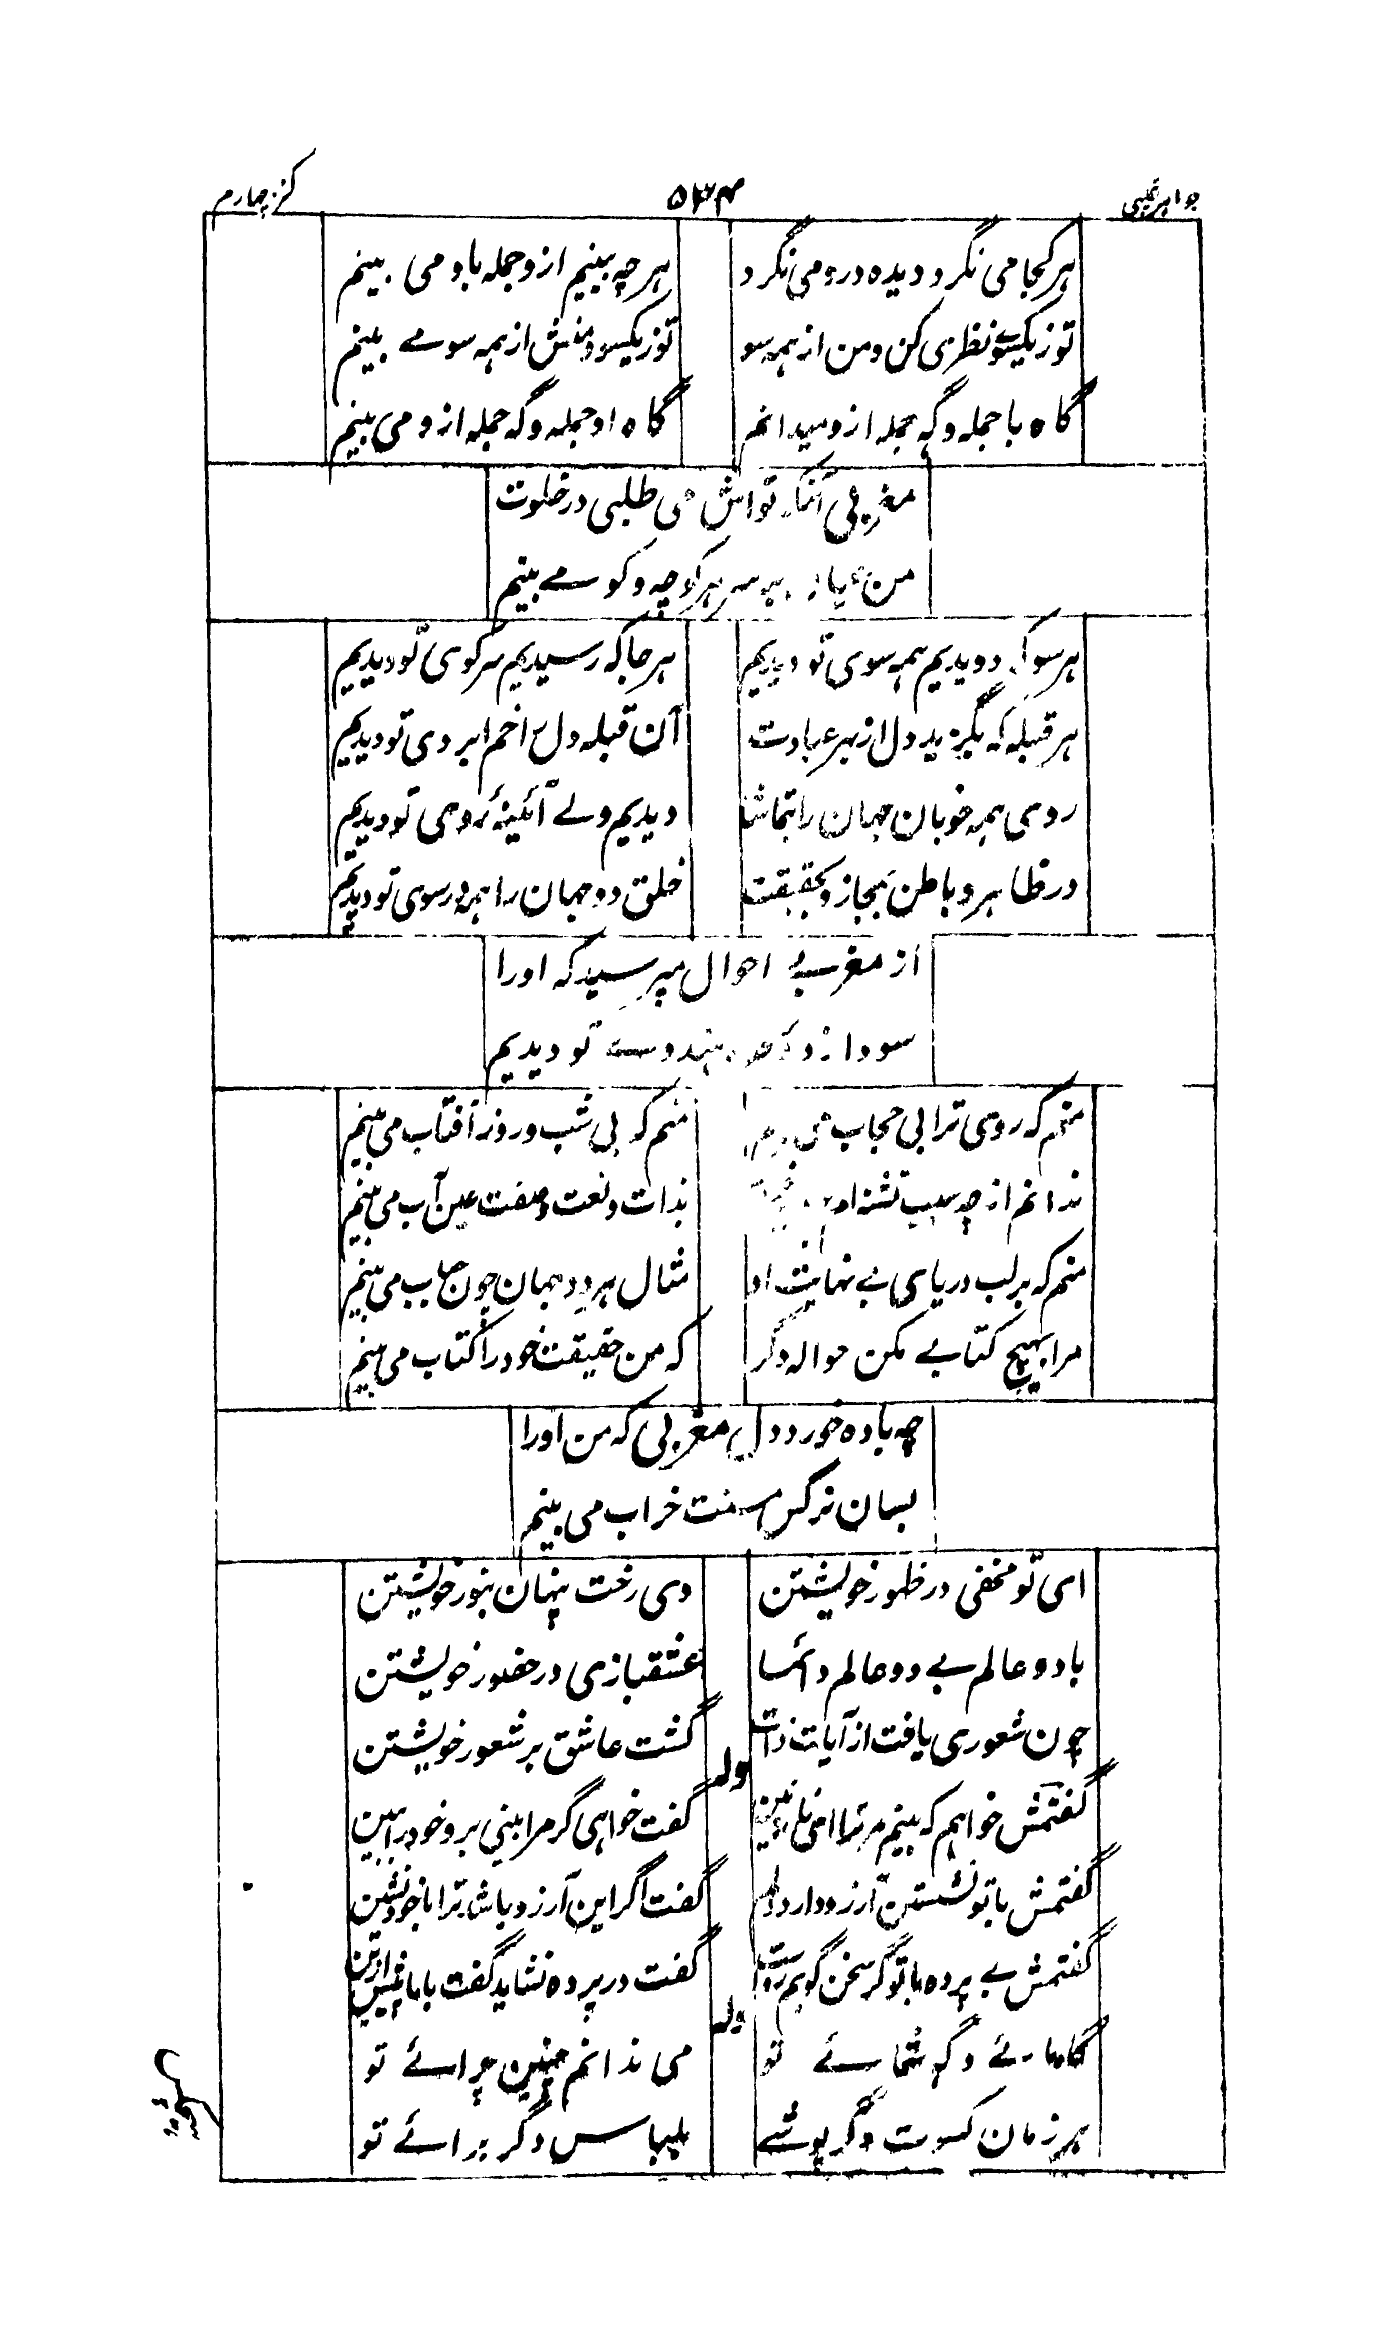 جواهر غیبی ۵۳۴ کنز چهارم
هر کجا می نگرد دیده درو می نگرد هر چه بینیم ازو جمله باو می بینم
تو ز یکسو نظری کن و من از همه سو تو ز یکسو و منش از همه سو مے بینم
گاه با جمله و گه جمله ازو میدانم گاه او جمله و گه جمله ازو می بینم
مغربی آنکه تواش می طلبی در خلوت
من عیان بر سر هر کوچه و کو مے بینم
هر سو که دویدیم همه سوی تو دیدیم هر جا که رسیدیم سر کوی تو دیدیم
هر قبله که بگزید دل از بهر عبادت آن قبله دل را خم ابروی تو دیدیم
روی همه خوبان جهان را بتماشا دیدیم ولے آئینهٔ روی تو دیدیم
در ظاهر و باطن بمجاز و بحقیقت خلق دو جهان را همه در سوی تو دیدیم
از مغربے احوال مپرسید که اورا
سودا زده هندوے تو دیدیم
منم که روی ترا بی حجاب می بینم منم که بی شب و روز آفتاب می بینم
ندانم از چه سبب تشنه اند بذات و نعت و صفت عین آب می بینم
منم که بر لب دریای بے نهایت او مثال هر دو جهان چون حباب می بینم
مرا بهیچ کتابے مکن حواله دگر که من حقیقت خود را کتاب می بینم
چه باده خورد دل مغربی که من اورا
بسان نرگس مست خراب می بینم
ای تو مخفی در ظهور خویشتن وی رخت پنهان بنور خویشتن
با دو عالم بے دو عالم دائما عشقبازی در حضور خویشتن
چون شعوری یافت از آیات ذات گشت عاشق بر شعور خویشتن
وله
گفتمش خواهم که بینم مر ترا ای نازنین گفت خواهی گر مرا بینی برو خود را ببین
گفتمش با تو نشستن آرزو دارد دلم گفت اگر این آرزو باشد ترا با خود نشین
گفتمش بے پرده با تو گر سخن گویم رواست گفت در پرده نشاید گفت با ما بیش ازین
وله
گاه مائے و گه شمائے تو می ندانم چنین چرائے تو
هر زمان کسوت دگر پوشے بلباس دگر برائے تو